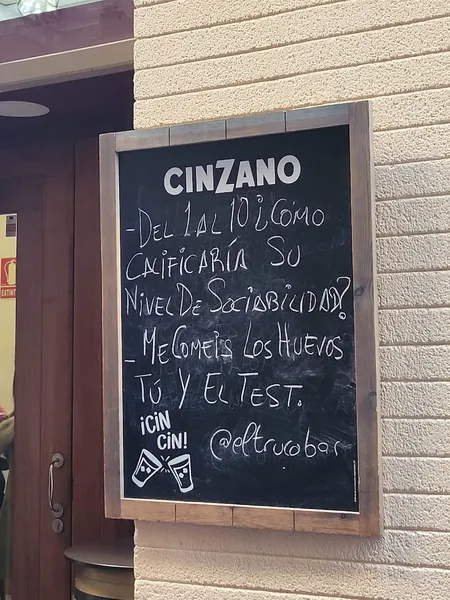 CINZANO
-DEL 1 AL 10 ¿CÓMO
CALIFICARÍA SU
NIVEL DE SOCIABILIDAD?
- ME COMEIS LOS HUEVOS
TÚ Y EL TEST.
¡CIN
CIN!
@eltrucobar
EXTINT